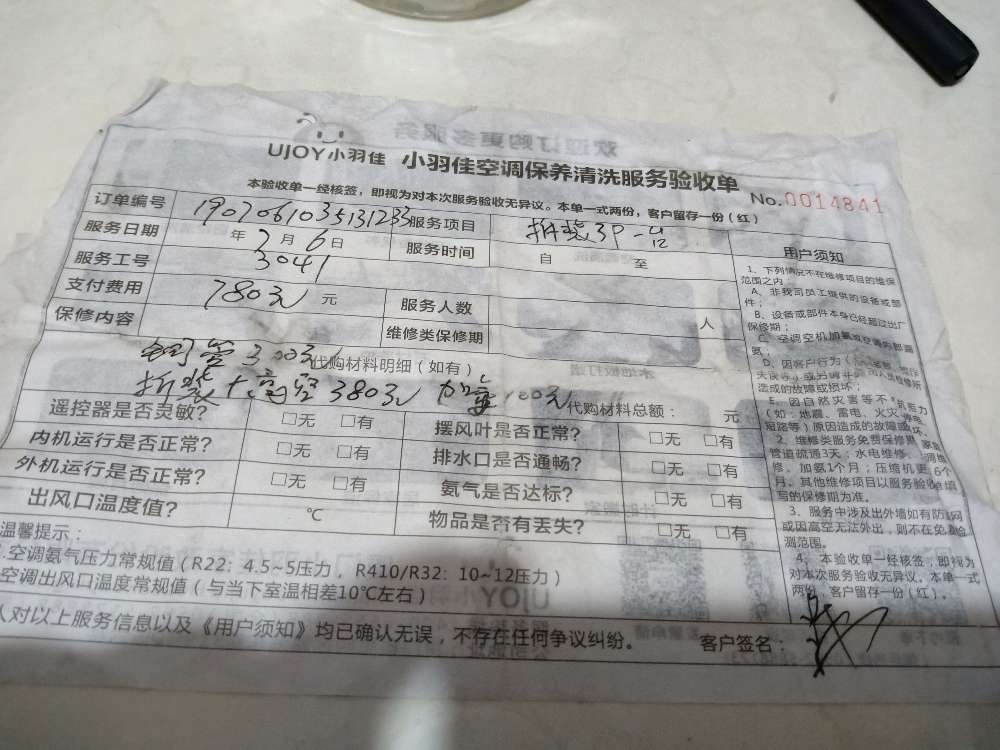 UJOY小羽佳 小羽佳空调保养清洗服务验收单
本验收单一经核签，即视为对本次服务验收无异议。本单一式两份，客户留存一份（红）
No.0014841
订单编号 服务项目 拆装3P
服务日期 年 3月6日 服务时间 自 至
服务工号 3041
支付费用 780元 元 服务人数 人
保修内容 维修类保修期
铜管300元 代购材料明细（如有）
拆装+高空380元 加氟100元 代购材料总额： 元
遥控器是否灵敏? □无 □有 摆风叶是否正常? □无 □有
内机运行是否正常? □无 □有 排水口是否通畅? □无 □有
外机运行是否正常? □无 □有 氨气是否达标? □无 □有
出风口温度值? ℃ 物品是否有丢失? □无 □有
温馨提示：
.空调氨气压力常规值（R22：4.5~5压力，R410/R32：10~12压力）
空调出风口温度常规值（与当下室温相差10℃左右）
人对以上服务信息以及《用户须知》均已确认无误，不存在任何争议纠纷。 客户签名：
用户须知
1、下列情况不在维修项目的维保
范围之内
A、非我司员工提供的设备或部
件；
B、设备或部件本身已经超过出厂
保修期；
造成的故障或损坏；
E、因自然灾害等不
（如：地震、雷电、火灾
短路等）原因造成的故障或
2、维修类服务免费保修期
管道疏通3天；水电维修
修、加氨1个月；压缩机更 6个
月。其他维修项目以服务验收单填
写的保修期为准。
3、服务中涉及出外墙如有防 网
或因高空无法外出，则不在免 检
测范围。
4、本验收单一经核签，即视为
对本次服务验收无异议。本单一式
两份，客户留存一份（红）。